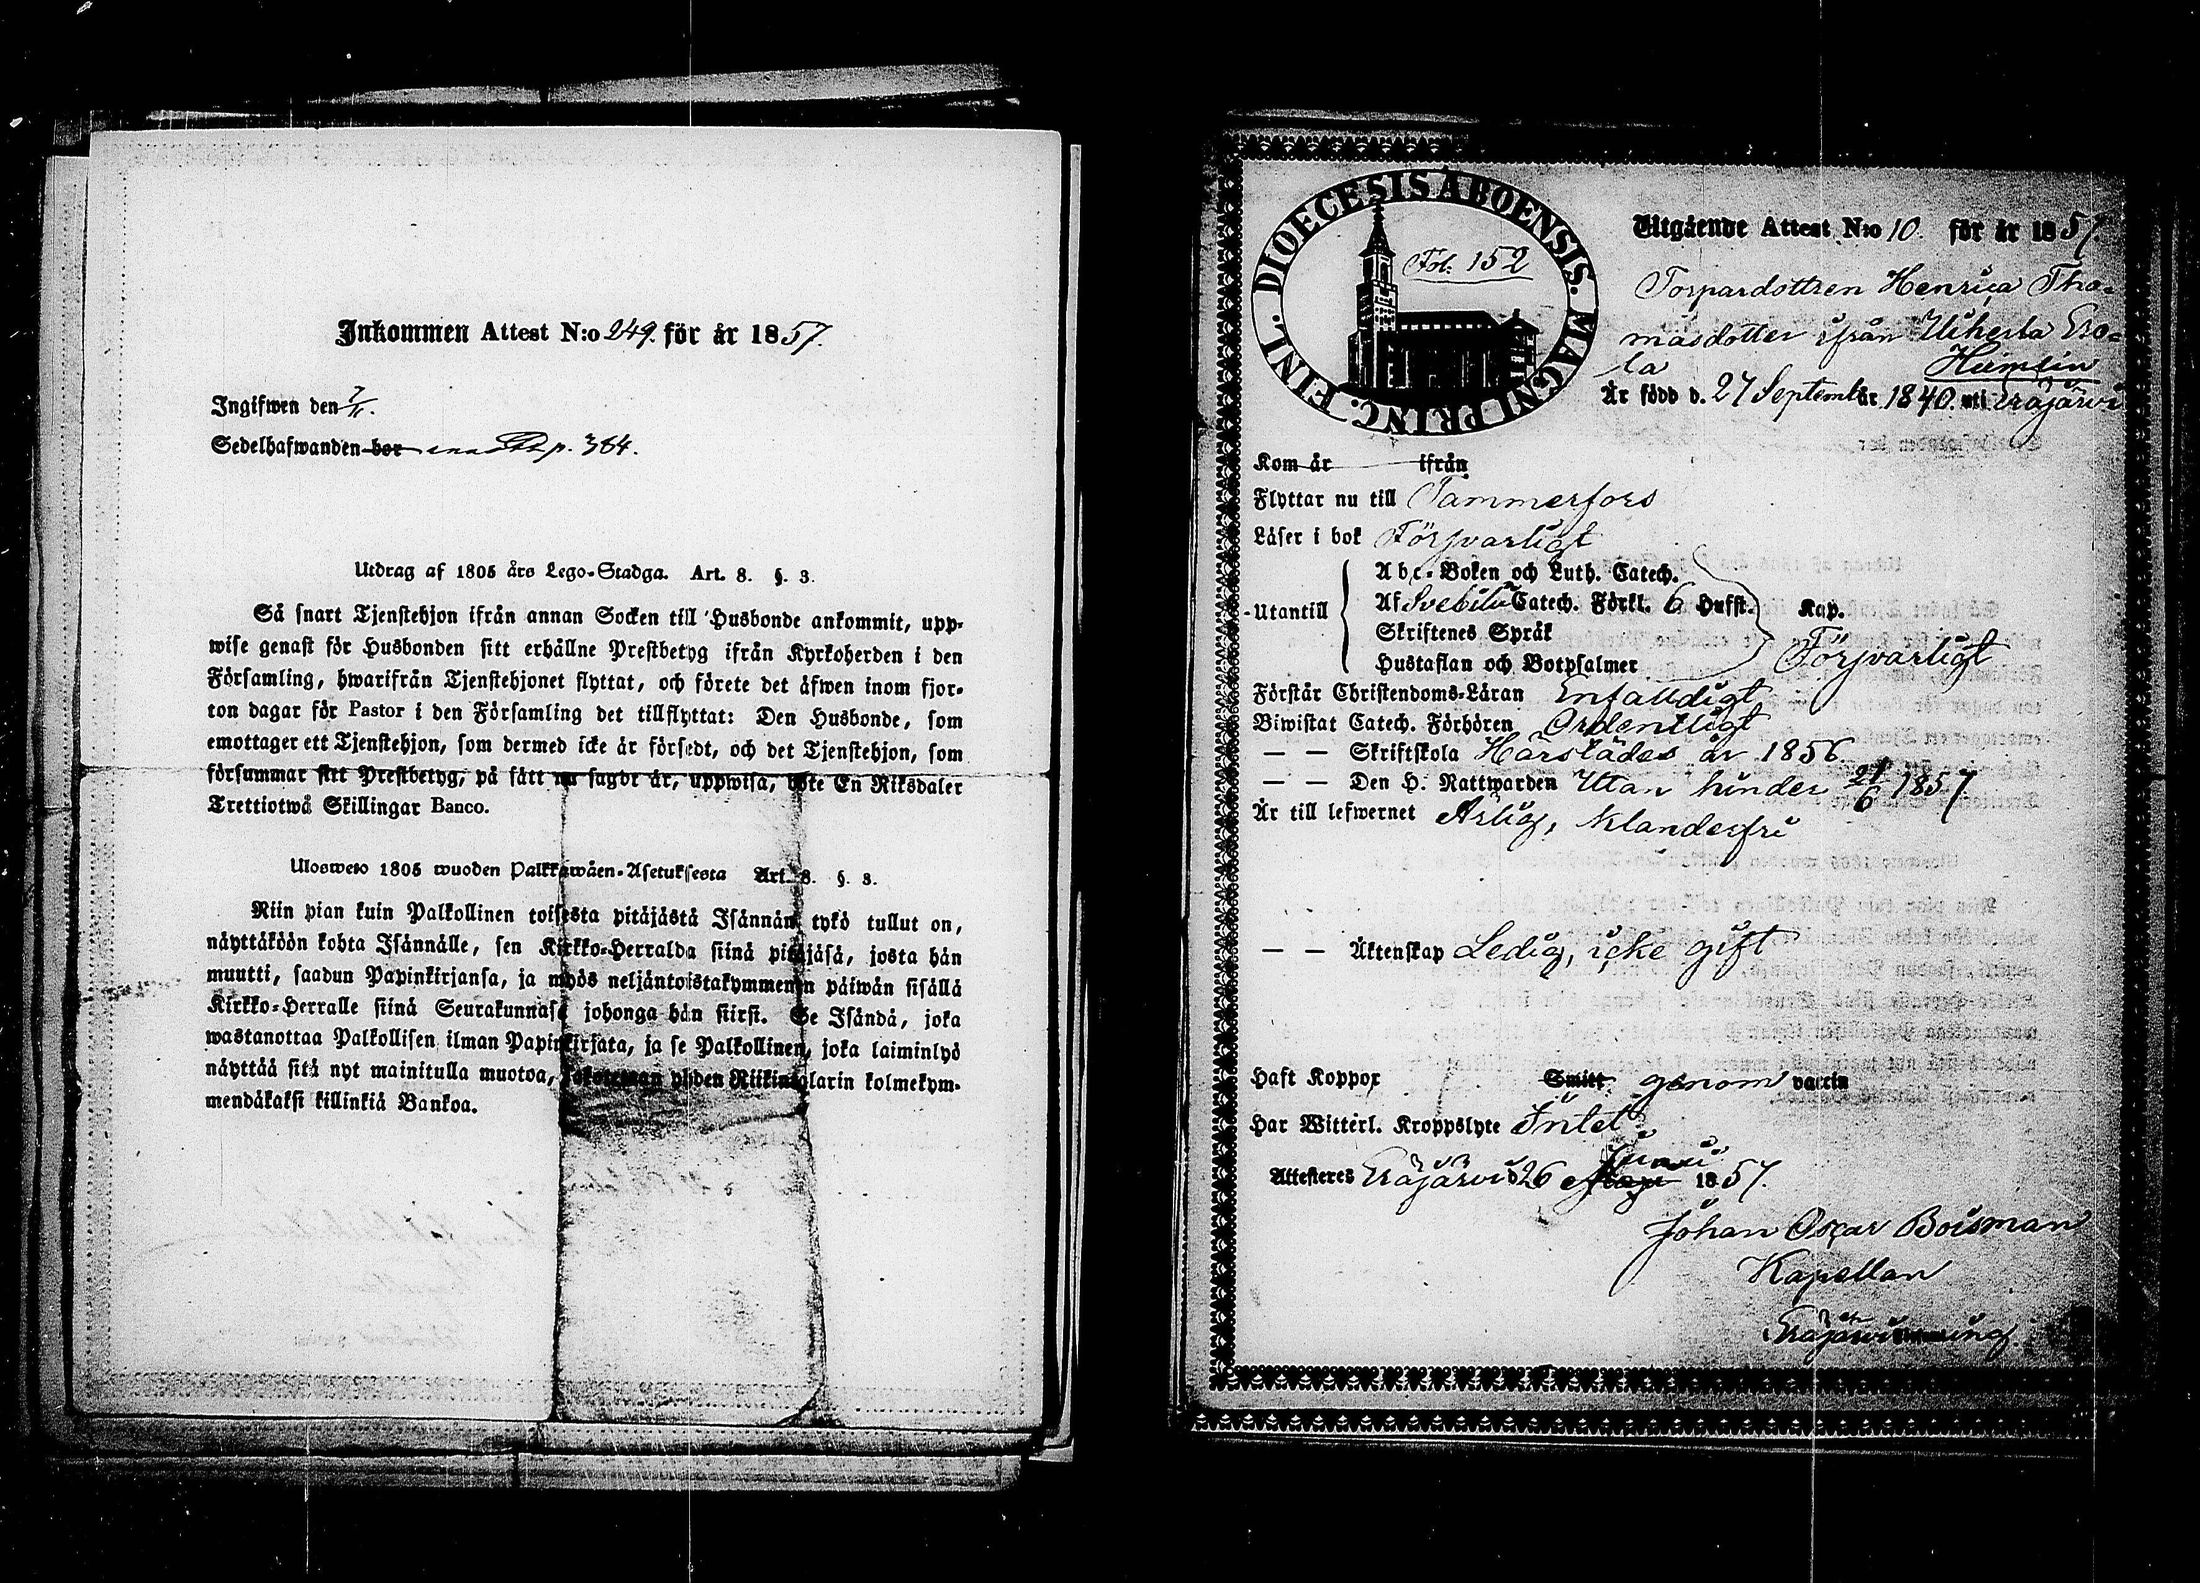 Inkommen Attest N:o 249. för år 1857.
Ingifwen den 7/11.
Sedelhafwanden bor p. 384.
Utdrag af 1805 års Lego-Stadga. Art. 8. §. 3.
Så snart Tjenstehjon ifrån annan Socken till Husbonde ankommit, upp-
wise genast för Husbonden sitt erhållne Prestbetyg ifrån Kyrkoherden i den
Församling, hwarifrån Tjenstehjonet flyttat, och förete det äfwen inom fjor-
ton dagar för Pastor i den Församling det tillflyttat: Den Husbonde, som
emottager ett Tjenstehjon, som dermed icke är försedt, och det Tjenstehjon, som
försummar sitt Prestbetyg, på sätt nu sagdt är, uppwisa, böte En Riksdaler
Trettiotwå Skillingar Banco.
Ulosweto 1805 wuoden Palkkawäen-Asetuksesta Art. 8. §. 3.
Niin pian kuin Palkollinen toisesta pitäjästä Isännän tykö tullut on,
näyttäköön kohta Isännälle, sen Kirkko-Herralda siinä pitäjäsä, josta hän
muutti, saadun Papinkirjansa, ja myös neljäntoistakymmenen päiwän sisällä
Kirkko-Herralle siinä Seurakunnasa johonga hän siirsi. Se Isändä, joka
wastanottaa Palkollisen ilman Papinkirjata, ja se Palkollinen, joka laiminlyö
näyttää sitä nyt mainitulla muotoa, yhden Riikintalarin kolmekym-
mendäkaksi killinkiä Bankoa.
DIOECESIS ABOENSIS. MAGNI PRINC. FINL.
Fol. 152
Utgående Attest N:o 10. för år 1857.
Torpardottren Henrica Tho-
masdotter ifrån Uiherla Ero-
la Heimlin
Är född d. 27 September 1840. uti Eräjärvi
Kom år ifrån
Flyttar nu till Tammerfors
Läser i bok Försvarligt
Utantill
Abc-Boken och Luth. Catech.
Af Svebilii Catech. Förkl. 6 Hufst. Kap.
Skriftenes Språk
Hustaflan och Botpsalmer Försvarligt
Förstår Christendoms-Läran Enfalldigt
Biwistat Catech. Förhören Ordentligt
— — Skriftskola Härstädes år 1856.
— — Den H. Nattwarden Utan hinder 21/6 1857
Är till lefwernet Ärlig, klanderfri
— — Äktenskap Ledig, icke gift
Haft Koppor Smitt genom vaccin
Har Witterl. Kroppslyte Intet
Junii
Attesteres Eräjärvi d 26 Maji 1857.
Johan Oscar Boisman
Kapellan